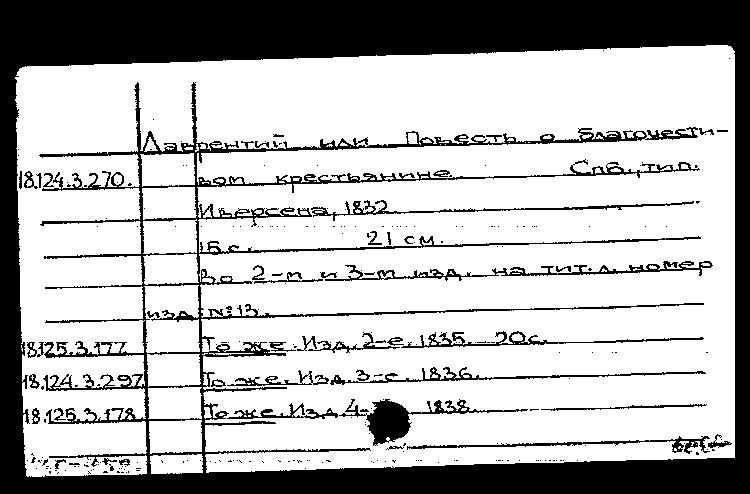 Лаврентий или Повесть о благочести-
18.124.3.270. вом крестьянине Спб., тип.
Иверсена, 1832
15 с. 21 см.
Во 2-м и 3-м изд. на тит. л. номер
изд. №13.
18.125.3.177. То же. Изд. 2-е. 1835. 20с.
18.124.3.297. То же. Изд. 3-е. 1836.
18.125.3.178. То же. Изд. 4- 1838.